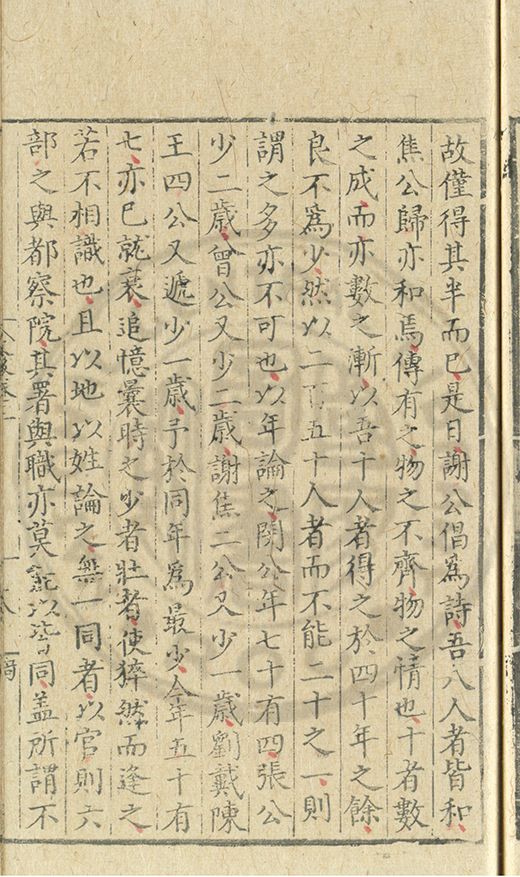 故僅得其半而已是日謝公倡為詩吾八人者皆和
焦公歸亦和焉傳有之物之不齊物之情也十者數
之成而亦數之漸以吾十人者得之於四十年之餘
良不為少然以二百五十人者而不能二十之一則
謂之多亦不可也以年論之閔公年七十有四張公
少二歲曾公又少二歲謝焦二公又少一歲劉戴陳
王四公又遞少一歲予於同年為最少今年五十有
七亦已就衰追憶曩時之少者壯者使猝然而逢之
若不相識也且以地以姓論之無一同者以官則六
部之與都察院其署與職亦莫能以皆同蓋所謂不